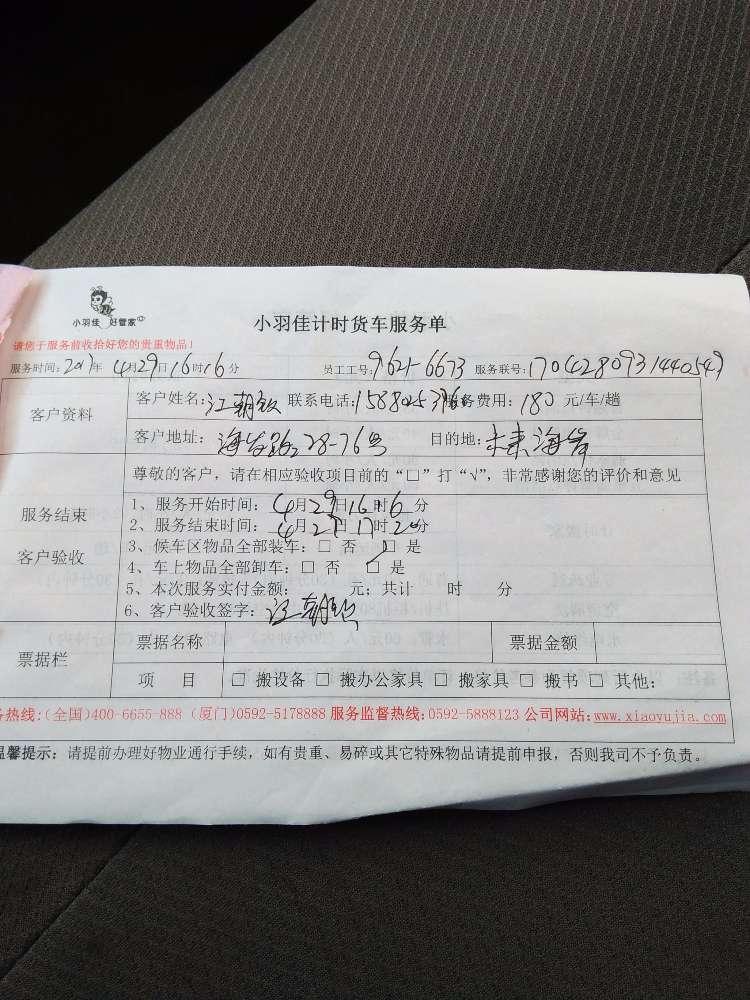 小羽佳 好管家
小羽佳计时货车服务单
请您于服务前收拾好您的贵重物品！
服务时间：2017年 4月29日16时16分 员工工号：9621-6673 服务联号：1704280931440549
客户资料
客户姓名：江朝 联系电话： 服务费用：180 元/车/趟
客户地址：海发路 28-76号 目的地：未来海岸
尊敬的客户，请在相应验收项目前的“□”打“√”，非常感谢您的评价和意见
服务结束
客户验收
1、服务开始时间：4月29日16时16分
2、服务结束时间：4月29日17时20分
3、候车区物品全部装车：□ 否 □ 是
4、车上物品全部卸车：□ 否 □ 是
5、本次服务实付金额： 元；共计 时 分
6、客户验收签字：江朝
票据栏
票据名称 票据金额
项 目 □ 搬设备 □ 搬办公家具 □ 搬家具 □ 搬书 □ 其他：
务热线：(全国)400-6655-888 (厦门)0592-5178888 服务监督热线：0592-5888123 公司网站：www.xiaoyujia.com
温馨提示：请提前办理好物业通行手续，如有贵重、易碎或其它特殊物品请提前申报，否则我司不予负责。